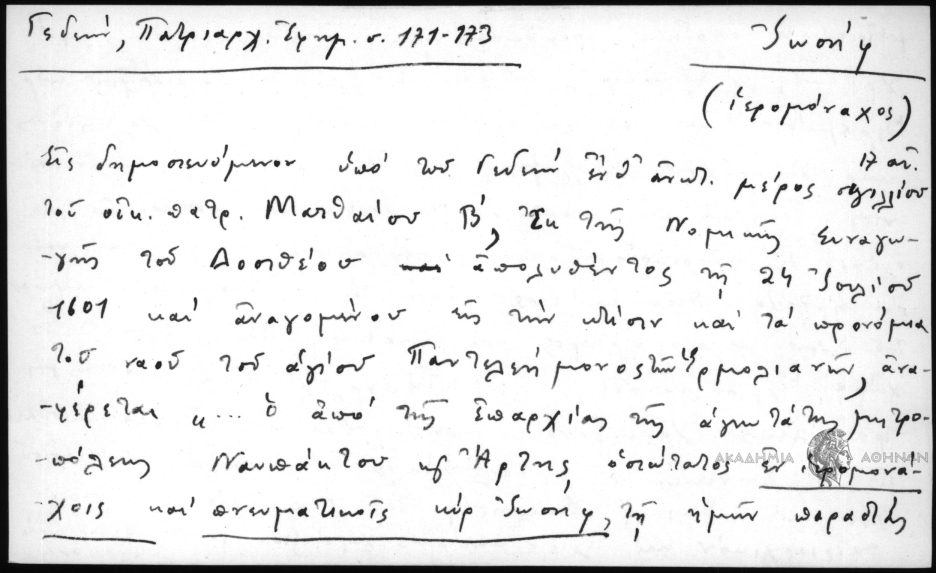 Γεδεών, Πατριαρχ. Ἐφημ. σ. 171-173
Ἰωσήφ
(ἱερομόναχος)
17 αἰ.
Εἰς δημοσιευόμενον ὑπό τοῦ Γεδεών ἐνθ' ἀνωτ. μέρος σιγιλλίου
τοῦ οἰκ. πατρ. Ματθαίου Β', ἐκ τῆς Νομικῆς Συναγω-
-γῆς τοῦ Δοσιθέου ἀπολυθέντος τῇ 24 Ἰουλίου
1601 καί ἀναγομένου εἰς τήν κτίσιν καί τά προνόμια
τοῦ ναοῦ τοῦ ἁγίου Παντελεήμονος τῶν Ἑρμολιανῶν, ἀνα-
-φέρεται "... ὁ ἀπό τῆς ἐπαρχίας τῆς ἁγιωτάτης μητρο-
-πόλεως Ναυπάκτου ϗ Ἄρτης ὁσιώτατος ἐν ἱερομονά-
ΑΚΑΔΗΜΙΑ ΑΘΗΝΩΝ
χοις καί πνευματικοῖς κύρ Ἰωσήφ, τῇ ἡμῶν παραστάς